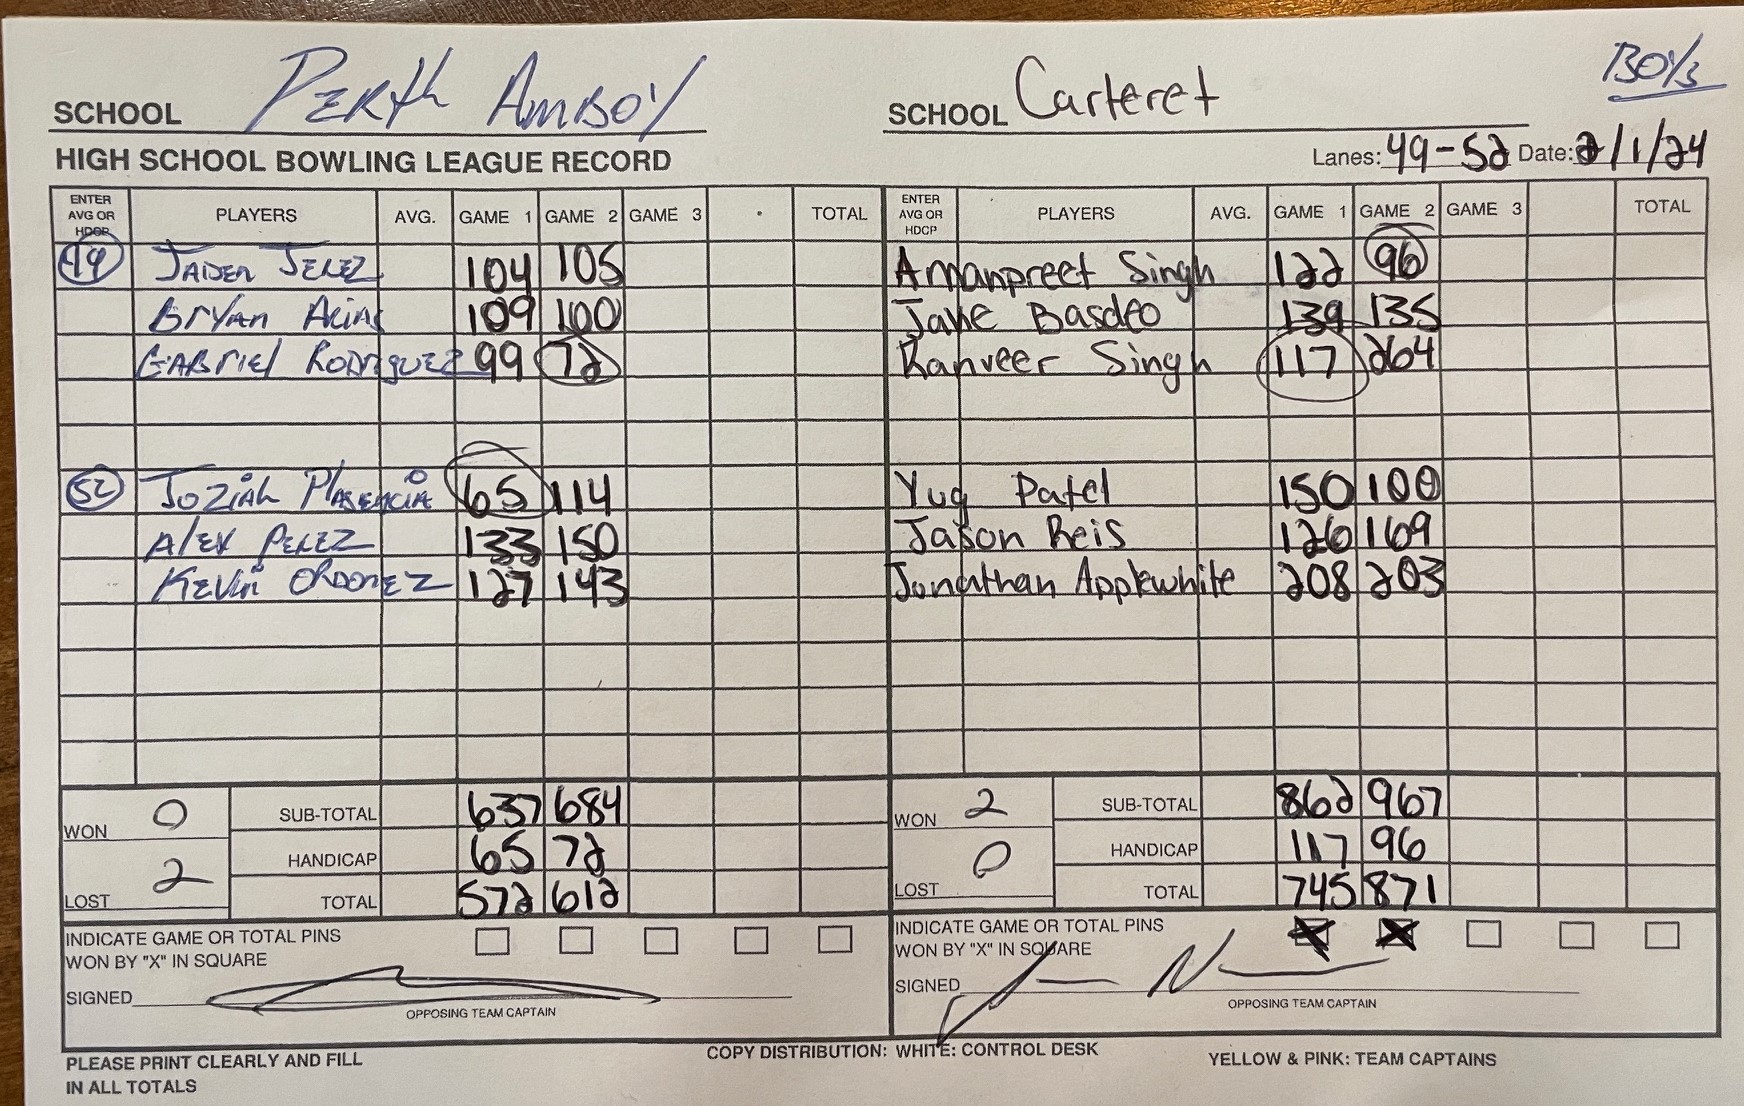 BOYS
SCHOOL PERTH AMBOY SCHOOL Carteret
HIGH SCHOOL BOWLING LEAGUE RECORD Lanes: 49-52 Date: 2/1/24
ENTER AVG OR HDCP PLAYERS AVG. GAME 1 GAME 2 GAME 3 TOTAL ENTER AVG OR HDCP PLAYERS AVG. GAME 1 GAME 2 GAME 3 TOTAL
49 JAIDEN JEREZ 104 105 Amanpreet Singh 122 96
BRYAN ARIAS 109 100 Jahe Basdeo 139 135
GABRIEL RODRIGUEZ 99 72 Ranveer Singh 117 264
52 JOZIAH PLASENCIA 65 114 Yug Patel 150 100
ALEX PEREZ 133 150 Jason Reis 126 169
KEVIN ORDONEZ 127 143 Jonathan Applewhite 208 203
WON 0 SUB-TOTAL 637 684 WON 2 SUB-TOTAL 862 967
HANDICAP 65 72 HANDICAP 117 96
LOST 2 TOTAL 572 612 LOST 0 TOTAL 745 871
INDICATE GAME OR TOTAL PINS INDICATE GAME OR TOTAL PINS
WON BY "X" IN SQUARE WON BY "X" IN SQUARE
SIGNED SIGNED
OPPOSING TEAM CAPTAIN OPPOSING TEAM CAPTAIN
PLEASE PRINT CLEARLY AND FILL COPY DISTRIBUTION: WHITE: CONTROL DESK YELLOW & PINK: TEAM CAPTAINS
IN ALL TOTALS